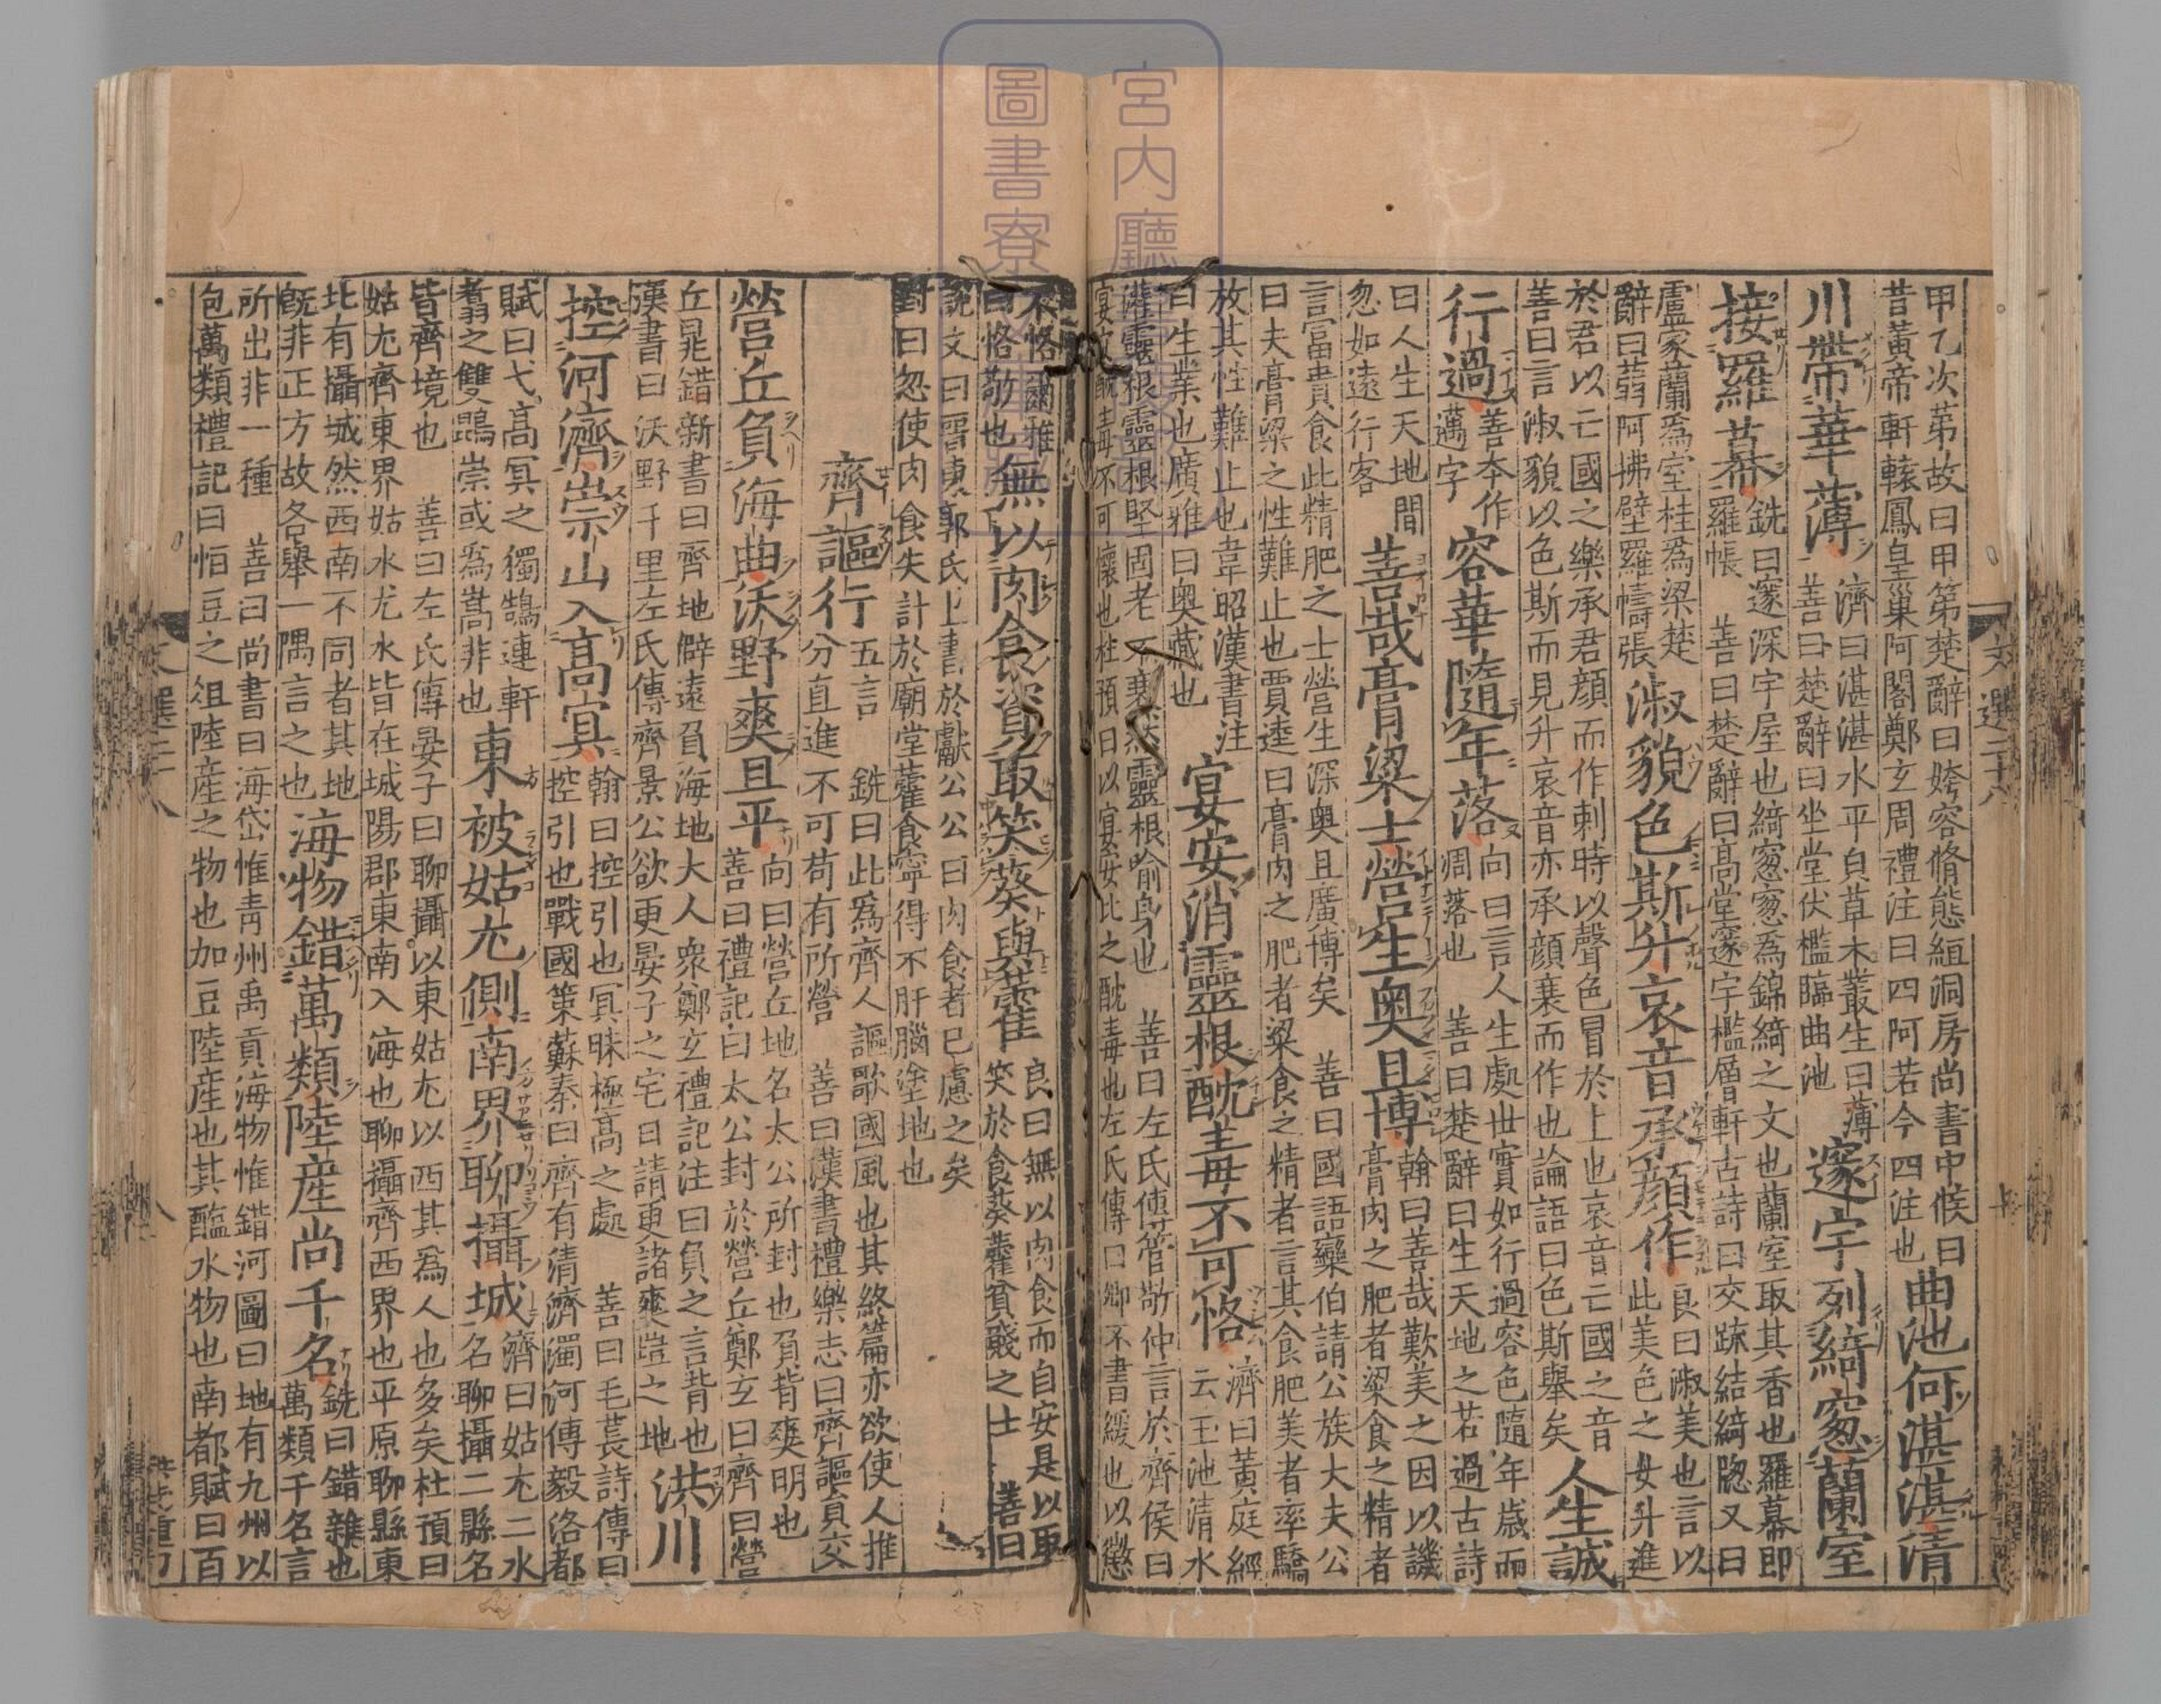 甲乙次第故曰甲第楚辭曰姱容脩態絙洞房尚書中候曰
昔黃帝軒轅鳳皇巢阿閣鄭玄周禮注曰四阿若今四注也
曲池何湛湛清
川帶華薄
濟曰湛湛水平皃草木叢生曰薄
善曰楚辭曰坐堂伏檻臨曲池
邃宇列綺窓蘭室
接羅幕
銑曰邃深宇屋也綺窓窓爲錦綺之文也蘭室取其香也羅幕即
羅帳 善曰楚辭曰高堂邃宇檻層軒古詩曰交踈結綺牎又曰
盧家蘭爲室桂爲梁楚
辭曰蒻阿拂壁羅幬張
淑貌色斯升哀音承顔作
良曰淑美也言以
此美色之女升進
於君以亡國之樂承君顔而作刺時以聲色冒於上也哀音亡國之音
善曰言淑貌以色斯而見升哀音亦承顔衰而作也論語曰色斯舉矣
人生誠
行過
善本作
邁字
容華隨年落
向曰言人生處世實如行過容色隨年歲而
凋落也 善曰楚辭曰生天地之若過古詩
曰人生天地間
忽如遠行客
善哉膏粱士營生奧且博
翰曰善哉歎美之因以譏
膏肉之肥者粱食之精者
言富貴食此精肥之士營生深奧且廣博矣 善曰國語欒伯請公族大夫公
曰夫膏粱之性難止也賈逵曰膏肉之肥者粱食之精者言其食肥美者率驕
放其性難止也韋昭漢書注
曰生業也廣雅曰奧藏也
宴安消靈根酖毒不可恪
濟曰黃庭經
云玉池清水
灌靈根靈根堅固老不衰然靈根喻身也 善曰左氏傳管敬仲言於齊侯曰
宴安酖毒不可懷也杜預曰以宴安比之酖毒也左氏傳曰卿不書緩也以懲
不恪爾雅
曰恪敬也
無以肉食資取笑葵與藿
良曰無以肉食而自安是以取
笑於食葵藿貧賤之士 善曰
說文曰晉東郭氏上書於獻公公曰肉食者已慮之矣
對曰忽使肉食失計於廟堂藿食寧得不肝腦塗地也
齊謳行
五言 銑曰此爲齊人謳歌國風也其終篇亦欲使人推
分直進不可苟有所營 善曰漢書禮樂志曰齊謳負交
營丘負海曲沃野爽且平
向曰營丘地名太公所封也負背爽明也
善曰禮記曰太公封於營丘鄭玄曰齊曰營
丘晁錯新書曰齊地僻遠負海地大人衆鄭玄禮記注曰負之言背也
漢書曰沃野千里左氏傳齊景公欲更晏子之宅曰請更諸爽塏之地
洪川
控河濟崇山入高冥
翰曰控引也冥昧極高之處 善曰毛萇詩傳曰
控引也戰國策蘇秦曰齊有清濟濁河傳毅洛都
賦曰弋高冥之獨鵠連軒
翥之雙鵾崇或爲嵩非也
東被姑尤側南界聊攝城
濟曰姑尤二水
名聊攝二縣名
皆齊境也 善曰左氏傳晏子曰聊攝以東姑尤以西其爲人也多矣杜預曰
姑尤齊東界姑水尤水皆在城陽郡東南入海也聊攝齊西界也平原聊縣東
北有攝城然西南不同者其地
旣非正方故各舉一隅言之也
海物錯萬類陸産尚千名
銑曰錯雜也
萬類千名言
所出非一種 善曰尚書曰海岱惟靑州禹貢海物惟錯河圖曰地有九州以
包萬類禮記曰恒豆之俎陸産之物也加豆陸産也其醢水物也南都賦曰百
文選二十八
宮内廳
圖書寮